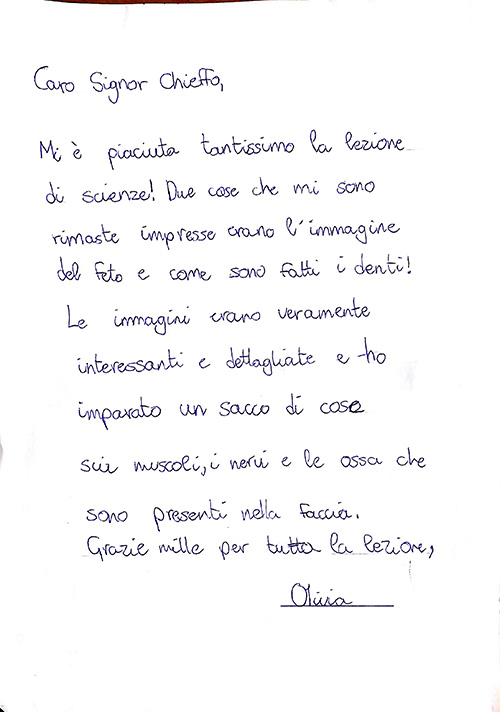 Caro Signor Chieffo,
Mi è piaciuta tantissimo la lezione
di scienze! Due cose che mi sono
rimaste impresse erano l'immagine
del feto e come sono fatti i denti!
Le immagini erano veramente
interessanti e dettagliate e ho
imparato un sacco di cose
sui muscoli, i nervi e le ossa che
sono presenti nella faccia.
Grazie mille per tutta la lezione,
Olivia